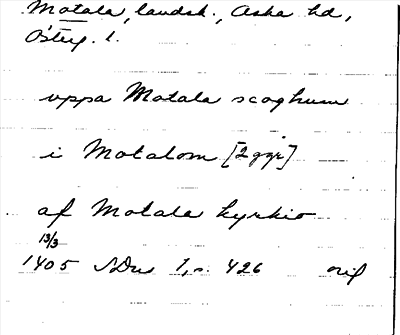 Motala, landsk., Aska hd,
Östg. l.
vppa Motala scoghum
i Motalom [2 ggr]
af Motala kyrkio
13/3
1405 SDns 1, s. 426 orig